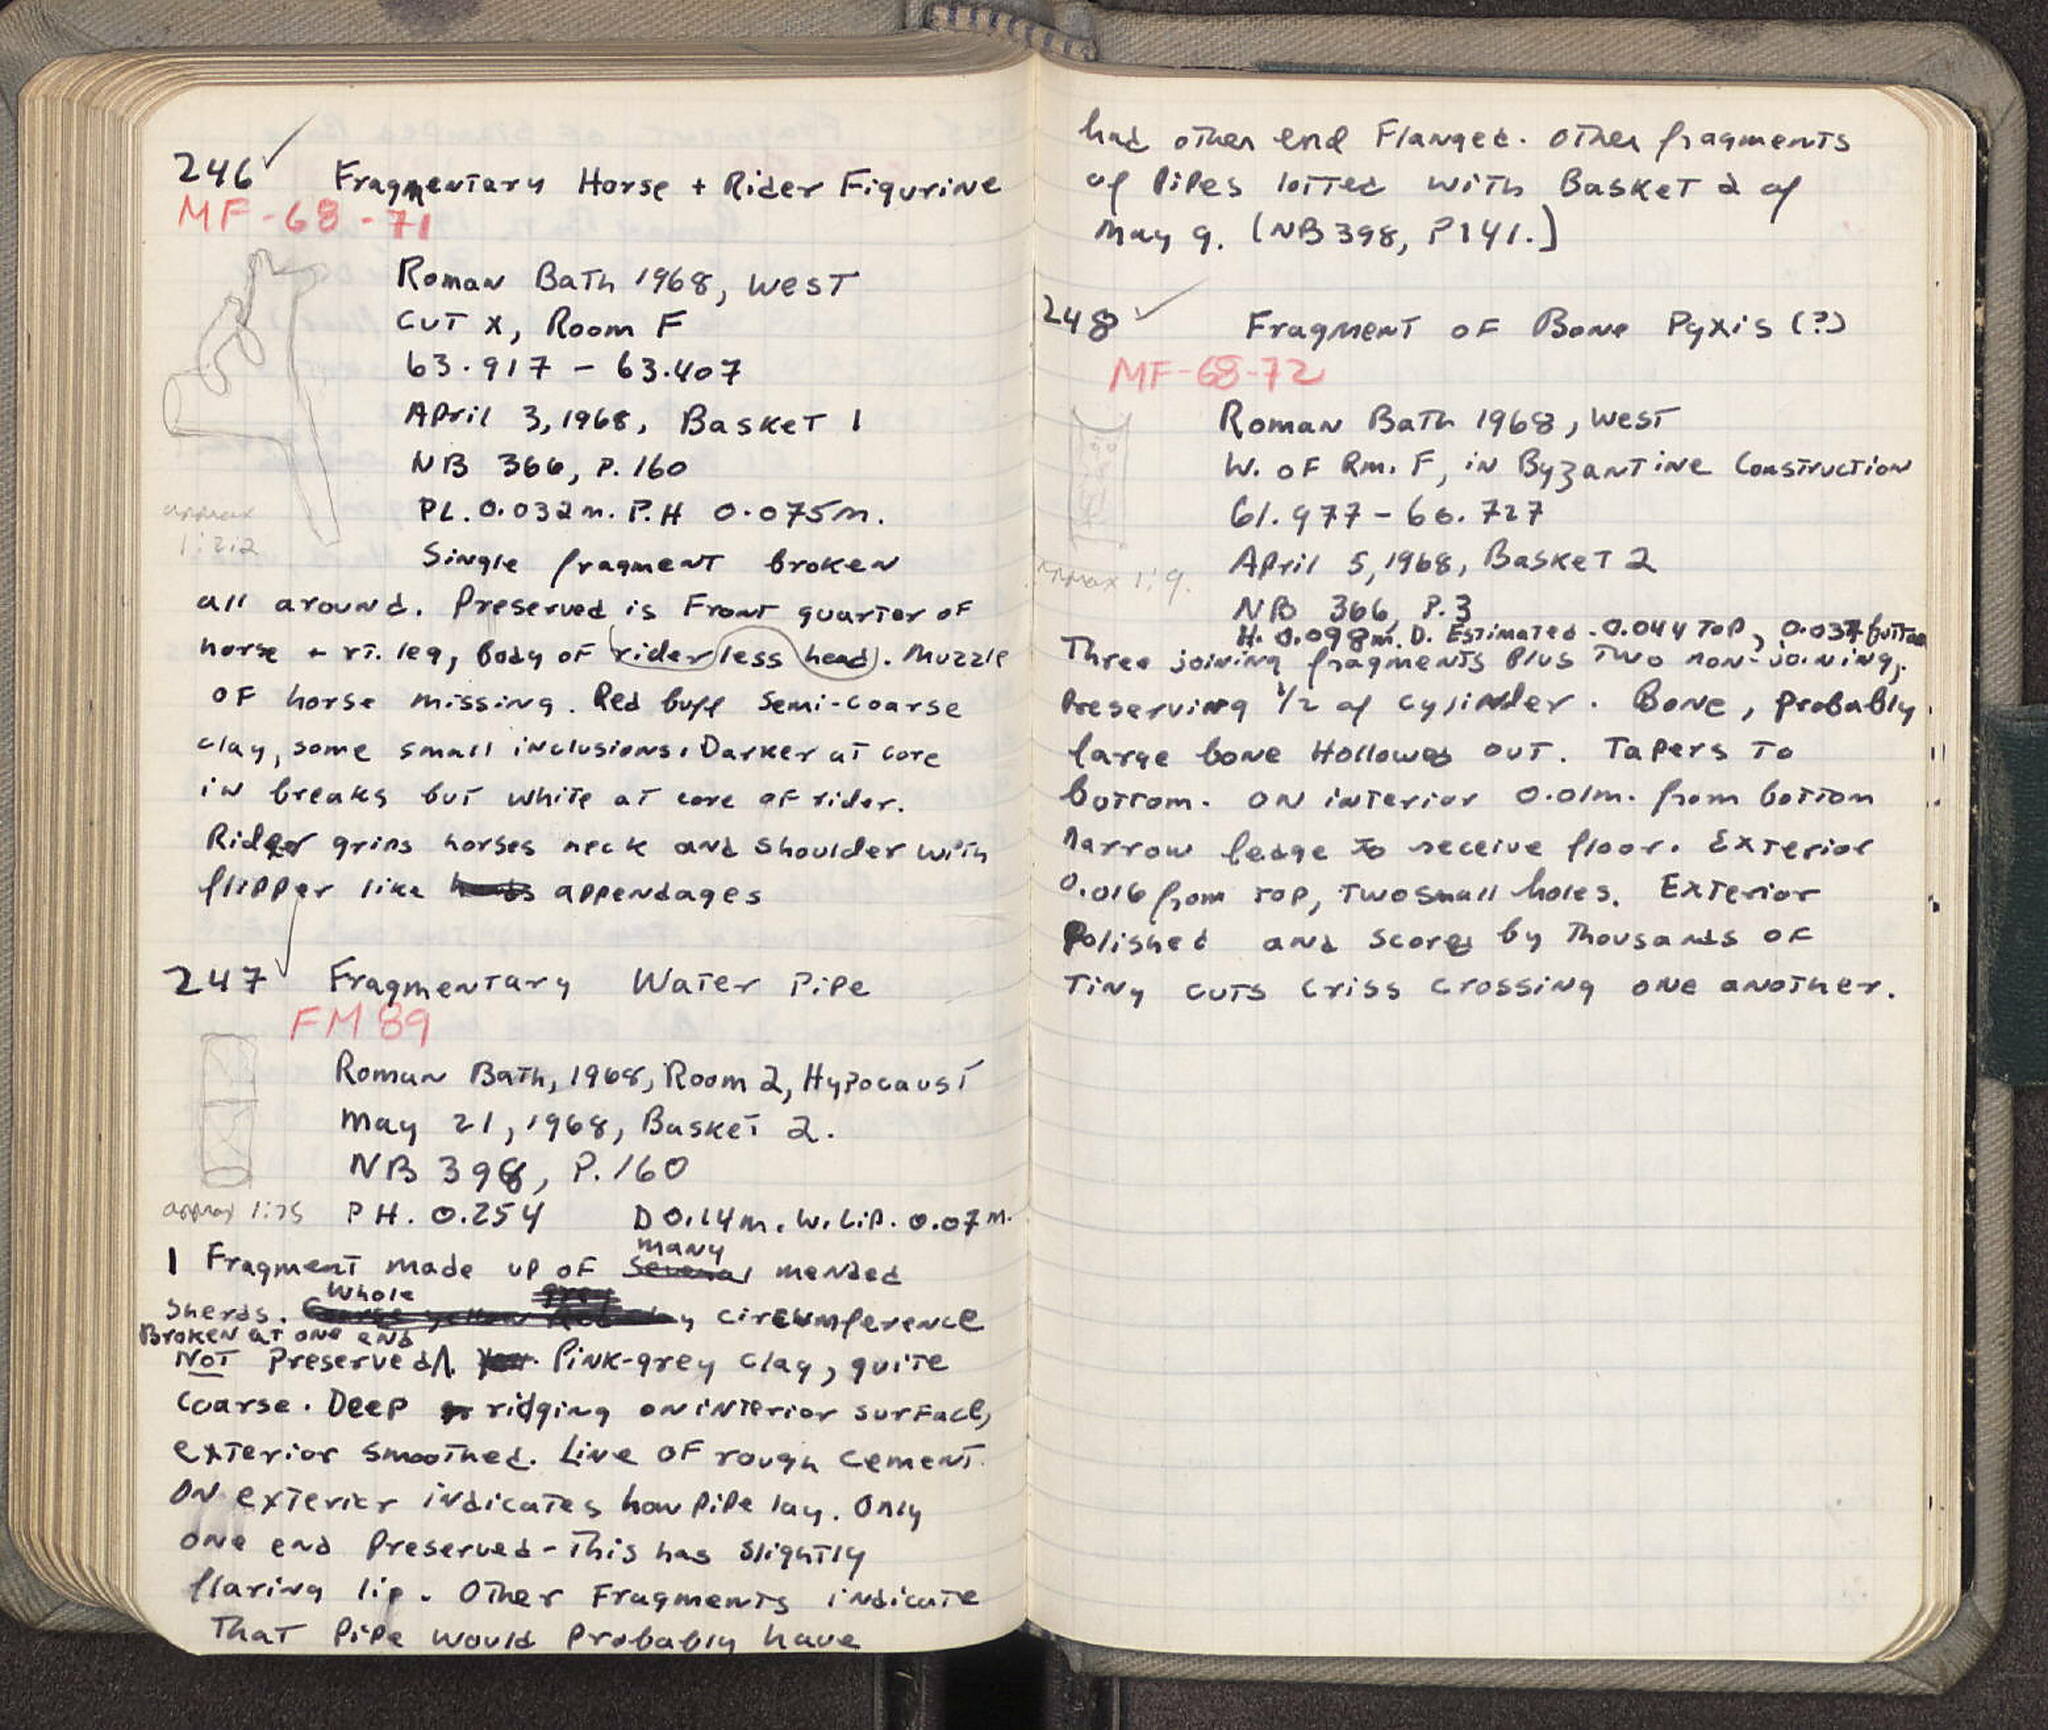 246 ✓ Fragmentary Horse + Rider Figurine
MF-68-71
Roman Bath 1968, West
Cut X, Room F
63.917 - 63.407
April 3, 1968, Basket 1
NB 366, P. 160
PL. 0.032m. P.H 0.075m.
approx
1:2.2
Single fragment broken
all around. Preserved is Front quarter of
horse + rt. leg, body of rider less head. Muzzle
of horse missing. Red buff semi-coarse
clay, some small inclusions. Darker at core
in breaks but white at core of rider.
Rider grips horses neck and shoulder with
flipper like hands appendages
247 ✓ Fragmentary Water Pipe
FM 89
Roman Bath, 1968, Room 2, Hypocaust
May 21, 1968, Basket 2.
NB 398, P. 160
approx 1:75 PH. 0.254 D 0.14m. W. Lip. 0.07m.
many
1 Fragment made up of several mended
Whole grey
sherds. circumference
Broken at one end
Not preserved/\. Pink-grey clay, quite
coarse. Deep ridging on interior surface,
exterior smoothed. Line of rough cement.
on exterior indicates how pipe lay. Only
one end preserved - This has slightly
flaring lip. Other Fragments indicate
That pipe would probably have
had other end Flanged. Other fragments
of pipes lotted with Basket 2 of
May 9. (NB 398, P141.)
248 ✓ Fragment of Bone Pyxis (?)
MF-68-72
Roman Bath 1968, West
W. of Rm. F, in Byzantine Construction
61.977 - 60.727
April 5, 1968, Basket 2
approx 1:9.
NB 366, P.3
H. 0.098m. D. Estimated. 0.044 Top, 0.037 bottom
Three joining fragments plus two non-joining,
Preserving 1/2 of cylinder. Bone, probably
large bone Hollowed out. Tapers to
bottom. On interior 0.01m. from bottom
narrow ledge to receive floor. Exterior
0.016 from top, two small holes. Exterior
Polished and scored by thousands of
Tiny cuts criss crossing one another.